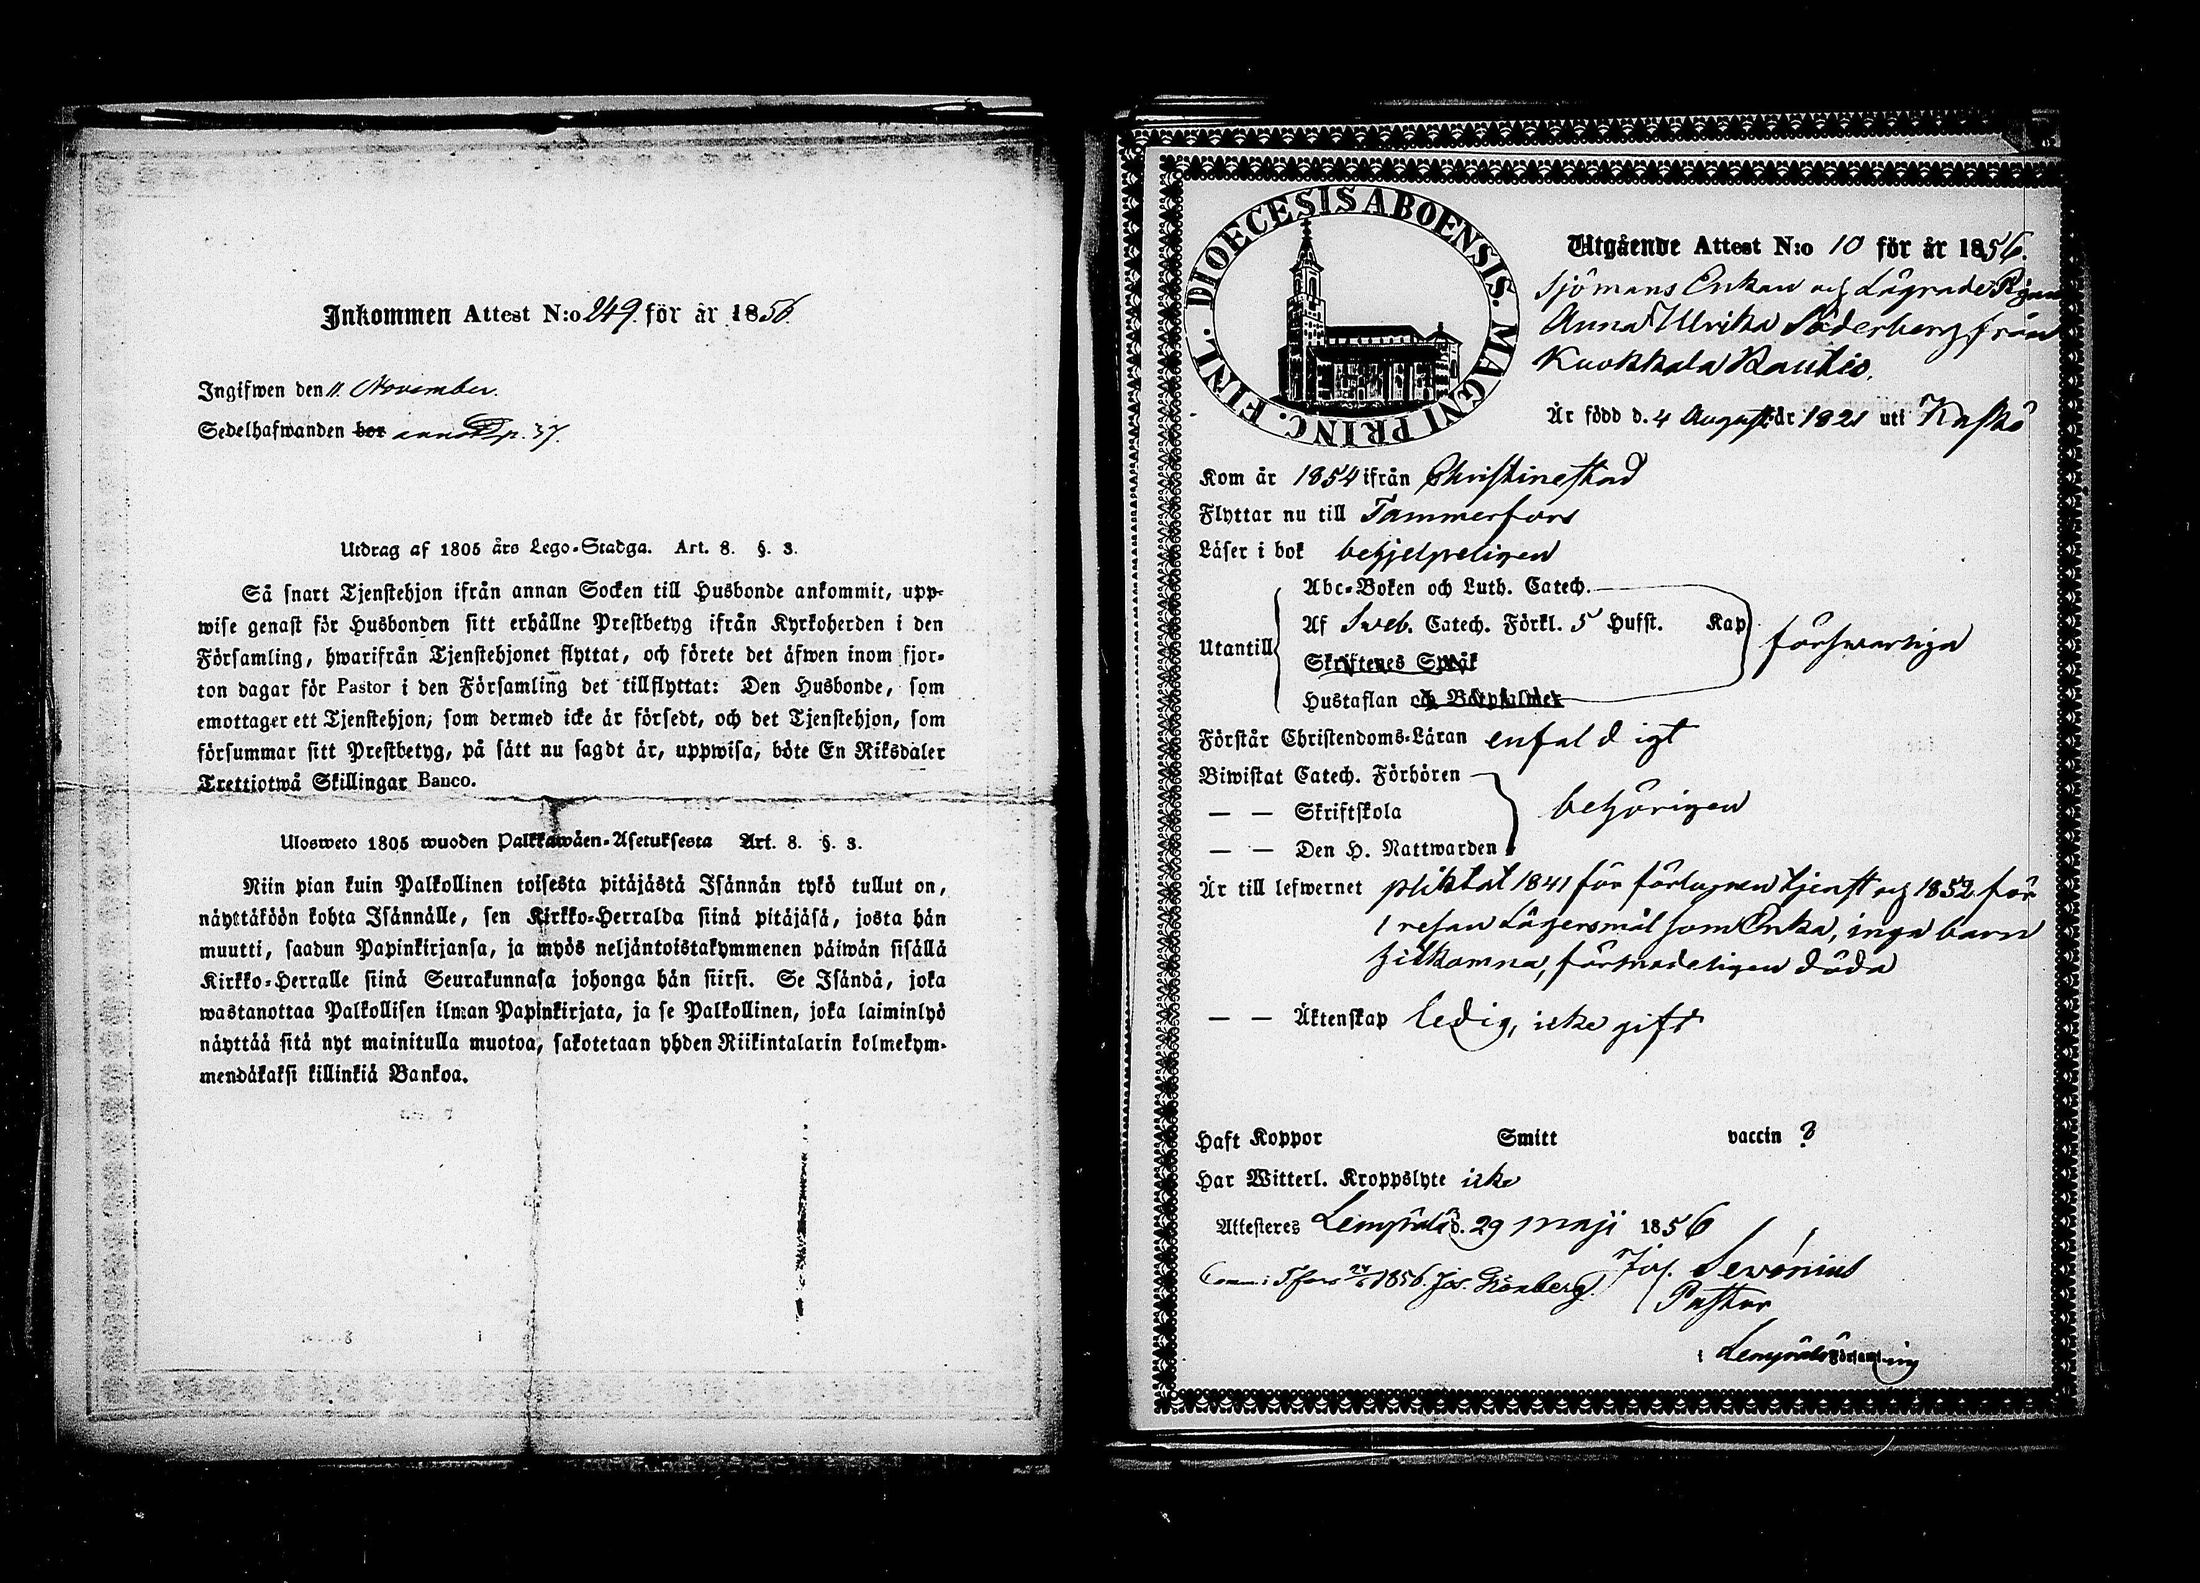 Inkommen Attest N:o 249. för år 1856.
Ingifwen den 11. November.
Sedelhafwanden bor p. 37.
Utdrag af 1805 års Lego-Stadga. Art. 8. §. 3.
Så snart Tjenstehjon ifrån annan Socken till Husbonde ankommit, upp-
wise genast för Husbonden sitt erhållne Prestbetyg ifrån Kyrkoherden i den
Församling, hwarifrån Tjenstehjonet flyttat, och förete det äfwen inom fjor-
ton dagar för Pastor i den Församling det tillflyttat: Den Husbonde, som
emottager ett Tjenstehjon, som dermed icke är försedt, och det Tjenstehjon, som
försummar sitt Prestbetyg, på sätt nu sagdt är, uppwisa, böte En Riksdaler
Trettiotwå Skillingar Banco.
Ulosweto 1805 wuoden Palkkawäen-Asetuksesta Art. 8. §. 3.
Niin pian kuin Palkollinen toisesta pitäjästä Isännän tykö tullut on,
näyttäköön kohta Isännälle, sen Kirkko-Herralda siinä pitäjäsä, josta hän
muutti, saadun Papinkirjansa, ja myös neljäntoistakymmenen päiwän sisällä
Kirkko-Herralle siinä Seurakunnasa johonga hän siirsi. Se Isändä, joka
wastanottaa Palkollisen ilman Papinkirjata, ja se Palkollinen, joka laiminlyö
näyttää sitä nyt mainitulla muotoa, sakotetaan yhden Riikintalarin kolmekym-
mendäkaksi killinkiä Bankoa.
DIOECESIS ABOENSIS. MAGNI PRINC. FINL.
Utgående Attest N:o 10 för år 1856.
Sjömans Enkan och Lägrade Pigan
Anna Ulrika Söderberg från
Kuokkala Rautio.
Är född d. 4 August år 1821 uti Kaskö
Kom år 1854 ifrån Christinestad
Flyttar nu till Tammerfors
Läser i bok behjelpeligen
Utantill
Abc-Boken och Luth. Catech.
Af Sveb. Catech. Förkl. 5 Hufst. Kap
Skriftenes Språk
Hustaflan och Botpsalmer
försvarliga
Förstår Christendoms-Läran enfaldigt
Biwistat Catech. Förhören
— — Skriftskola
— — Den H. Nattwarden
behörigen
Är till lefwernet pliktat 1841 för förlupen tjenst och 1852 för
1 resan Lägersmål som Enka, inga barn
tilkomna, förmodeligen döda
— — Äktenskap ledig, icke gift
Haft Koppor Smitt vaccin ?
Har Witterl. Kroppslyte icke
Attesteres Lempälä d. 29 maji 1856
Jos. Sevonius
Comm. i Tfors 24/6 1856. Jos. Grönberg.
Pastor
i Lempälä Församling